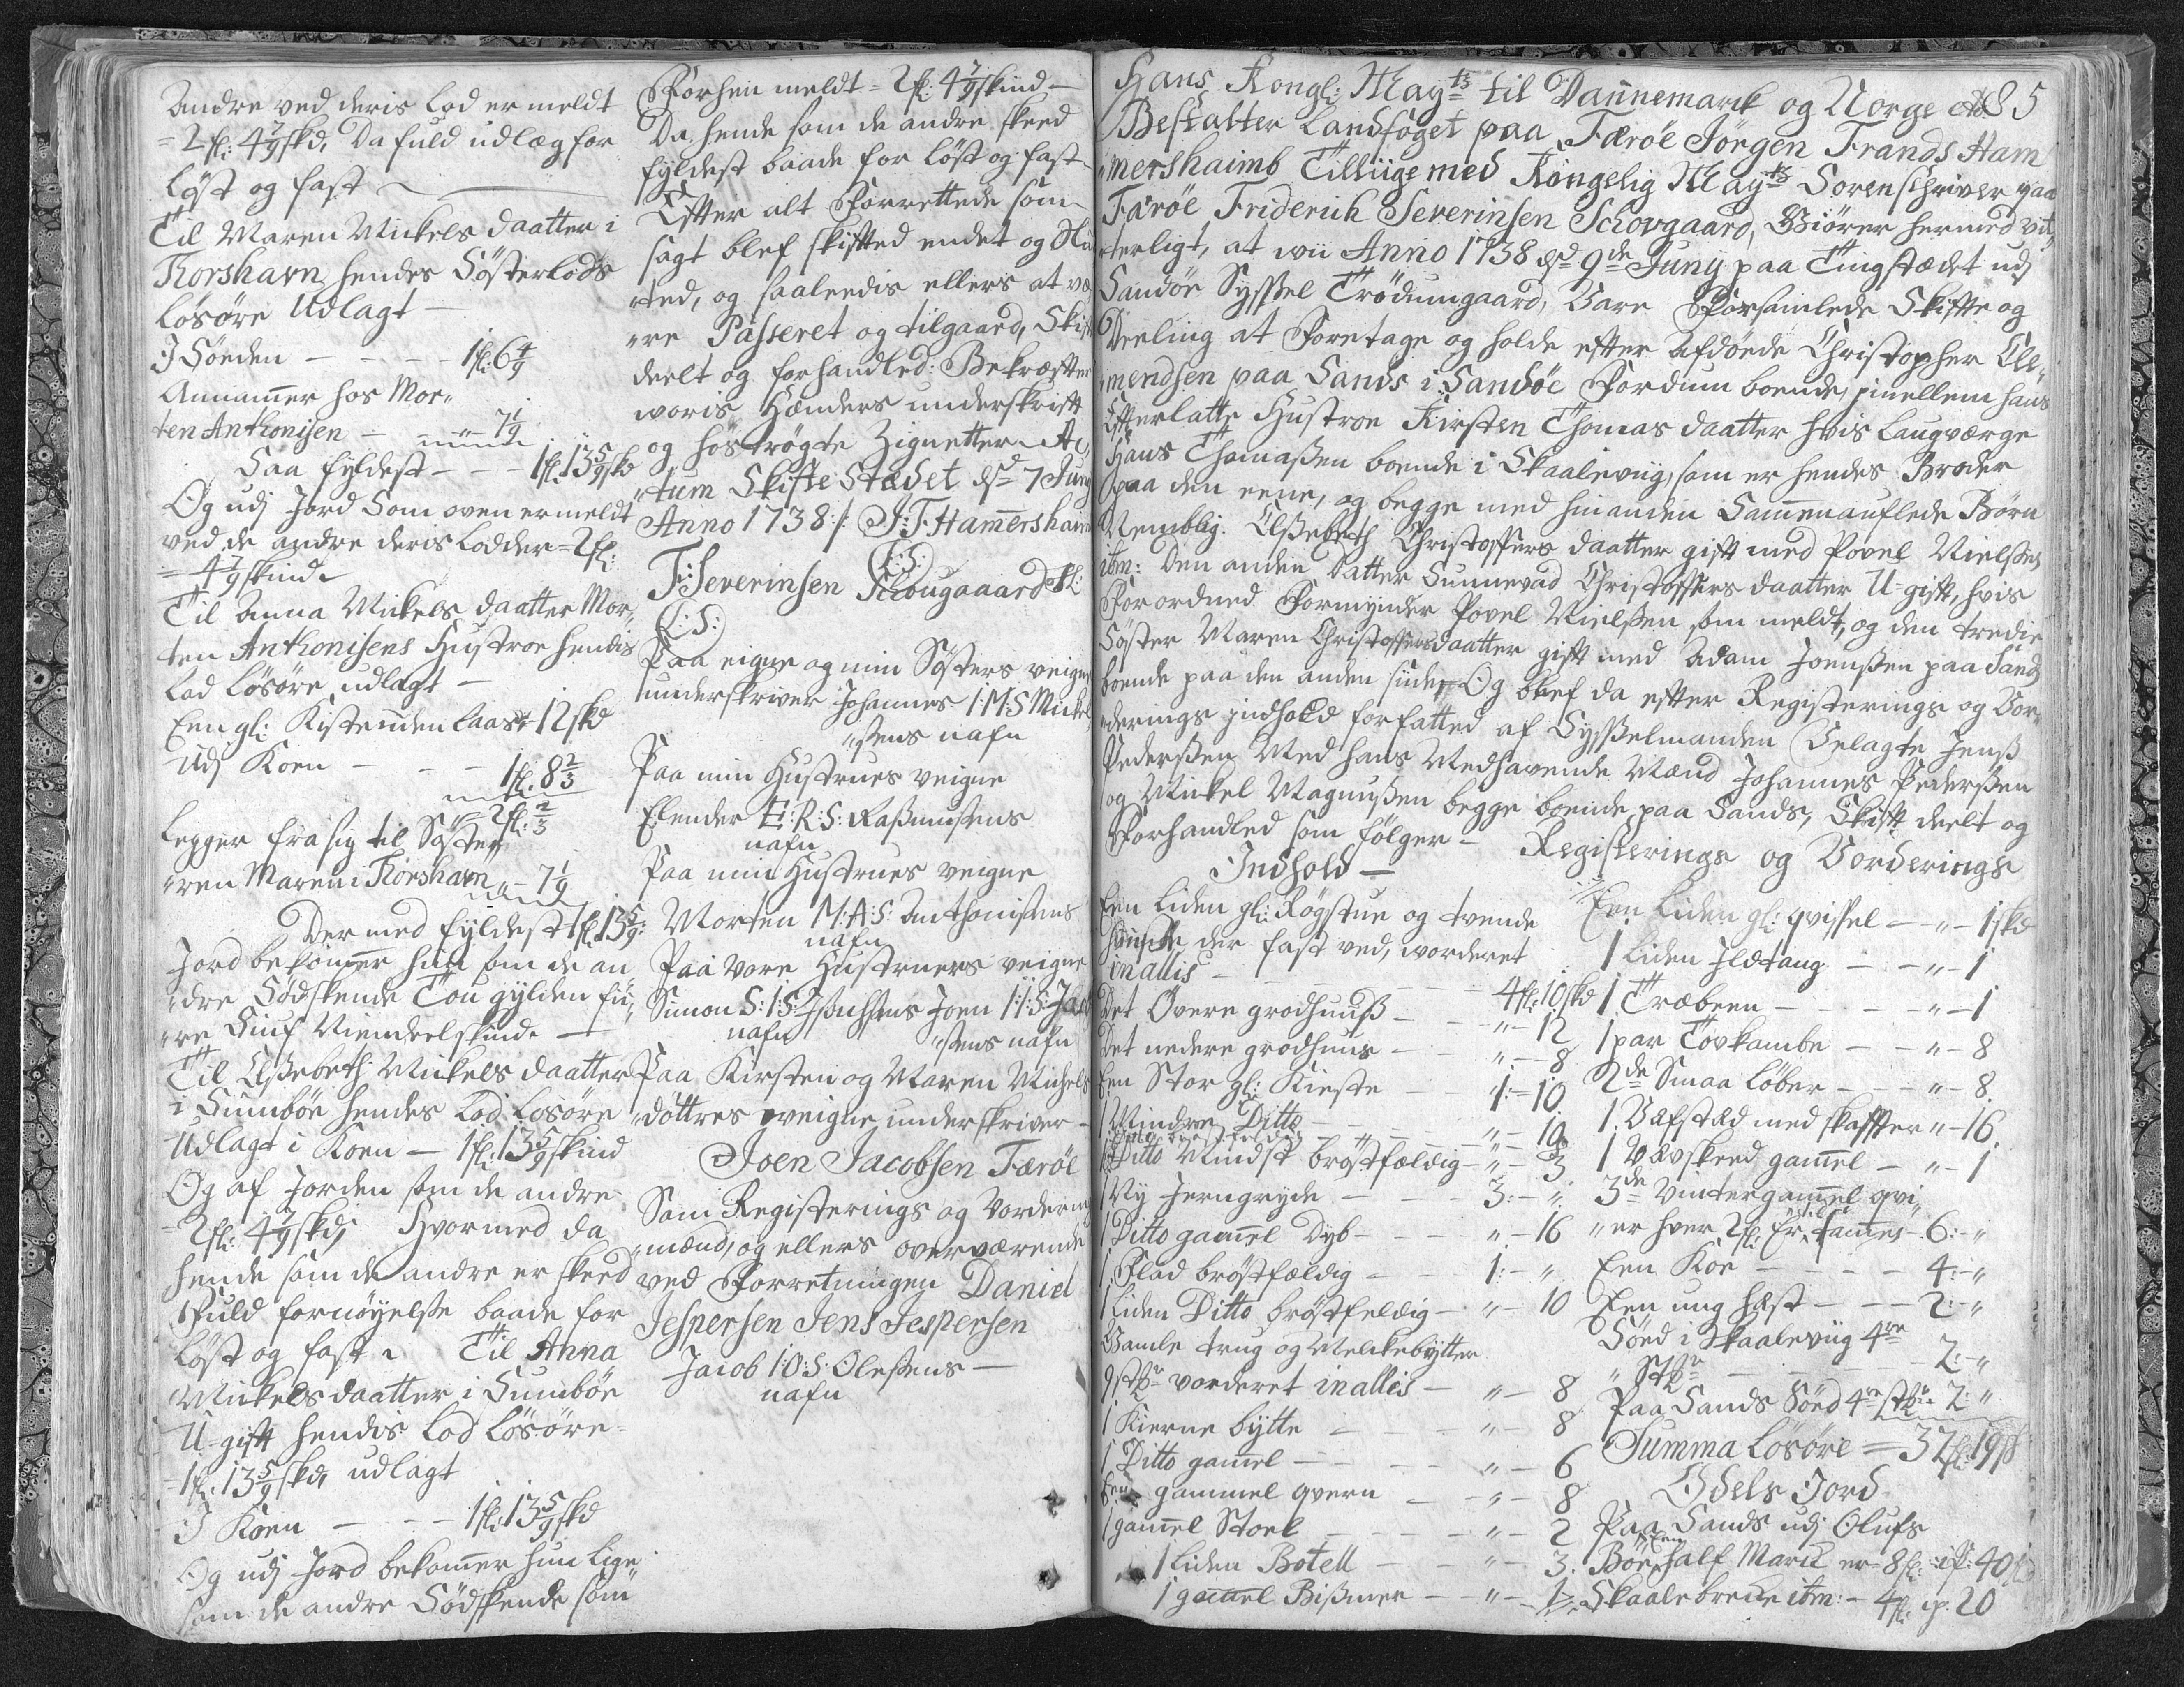 Andre ved deris Lod er meldt
= 2 fl: 4 7/9 skd, Da fuld udlæg for
Løst og fast
Til Maren Mickels daatter i
Thorshavn hendes Søsterlods
Løsøre Udlagt —
I Søeden — — — 1 fl: 6 4/9
Annammer hos Mor„
ten Anthonisen — „ — 7 1/9
Saa fyldest — — 1 fl: 13 5/9 skd
Og udj Jord Som oven er meldt
ved de andre deris Lodder = 2 fl:
= 4 7/9 skind
Til Anna Mickels daatter Mor„
ten Anthonisens Hustroe hendis
Lod Løsøre udlagt —
Een gl: Kiste uden Laas = 12 skd
Udj Koen — — — 1 fl: 8 2/3
= 2 fl: 2/3
Legger fra sig til Søste„
„ren Maren i Thorshavn „ — 7 1/9
Der med fyldest 1 fl: 13 5/9:
Jord bekommer hun som de an
„dre Sødskende Tou gylden fii„
„re Siuf Niendeel skind —
Til Elsebeth Mickels daatter
i Sumbøe hendes Lod Løsøre
Udlagt i Koen — 1 fl: 13 5/9 skind
Og af Jorden som de andre
= 2 fl: 4 7/9 skd, Hvormed da
hende som de andre er skeed
Fuld fornøyelse baade for
Løst og fast Til Anna
Mickelsdaatter i Sumbøe
U-gift hendis Lod Løsøre =
= 1 fl: 13 5/9 skd, udlagt
I Koen — — — 1 fl: 13 5/9 skd
Og udj Jord bekommer hun lige
som de andre Sødskende som
Forhen meldt = 2 fl: 4 7/9 skind —
Da hende som de andre skeed
fyldest baade for Løst og fast
Effter alt Forrettede som
sagt blef skifftet endet og Slu
„ted, og saaledis ellers at væ
„re Passeret og tilgaaed, Skifft
deelt og forhandled: Bekræffter
woris Hænders underskrifft
og hostrøgte Zignetter Ac„
„tum Skifte Stædet dd 7 Juny
Anno 1738 :/: J:F: Hamershaimb
(L:S:)
F: Severinsen Schougaaard
(L:S:)
Paa eigne og min Søsters veigne
underskriver Johannes I:M:S Mickel
„sens nafn
Paa min Hustrues veigne
Elender E:R:S: Rasmussens
nafn
Paa min Hustrues veigne
Morten M:A:S: Anthonisens
nafn
Paa Vore Hustruers veigne
Simon S:I:S: Joen I:I:S: Jac
nafn „sens nafn
Paa Kirsten og Maren Michels
døttres veigne underskriver —
Joen Jacobsen Færöe
Som Registerings og Vorderings
„mænd, og ellers overværende
ved Forretningen Daniel
Jespersen Jens Jespersen
Jacob I:O:S: Olesens —
nafn
85
Hans Kongl: Mayts til Dannemarck og Norge etc
Bestalter Landfoget paa Færöe Jörgen Frands Ham
„mershaimb Tilliige med Kongelig Mayts Sorenschriver paa
Færöe Friderich Severinsen Schovgaard, Giörer hermed vit„
„terligt, at wii Anno 1738 dd 9de Juny paa Tingstædet udj
Sandöe Syssel Trödumgaard, Vare Forsamlede Skiffte og
Deeling at Foretage og holde efter afdøede Christopher Cle„
„mendsen paa Sands i Sandöe Fordum boende, imellem hans
Effterlatte Hustroe Kirsten Thomas daatter hvis Laugværge
Hans Thomassen boende i Skaaleviig, som er hendes Broder
paa den eene, og begge med hinanden Sammenauflede Børn
Nemblig: Elsebeth Christoffers daatter gift med Povel Nielsen
ibm: Den anden Datter Sunnevad Christoffers daatter U-gift, hvis
Forordned Formynder Povel Nielsen som meldt, og den tredie
Søster Maren Christoffersdaatter gift med Adam Joensen paa Sand
boende paa den anden siide, Og blef da effter Registerings og Vor„
„derings Indhold forfatted af Sysselmanden Velagte Jens
Pedersen Med hans Medhavende Mænd Johannes Pedersen
og Mickel Magnussen begge boende paa Sands, Skifft deelt og
Forhandled som følger — Registerings og Vorderings
Indhold —
Een Liden gl: Røgstue og tvende
huuse der fast ved, worderet
in allis — — — — 4 fl: 10 skd
Det Övere grodhuuß — — „ — 12
Det nedere grodhuus — — „ — 8
Een Stor gl: Kieste — — 1: — 10
1 Mindre Ditto — — — „ — 10
1 Ditto Mindst brøstfældig — „ — 3.
1 Ny Jerngryde — — — 3: — „
1 Ditto gammel Dyb — — „ — 16
1 Flad brøstfældig — — 1: — „
1 Liden Ditto brøstfeldig — „ — 10
Gamle trug og Melckebytter
9 stkr vorderet in allis — „ — 8
1 Kierne bytte — — — „ — 8
1 Ditto gamel — — — „ — 6
Een gammel qvern — — „ — 8
1 gammel Stoel — — — „ — 2
1 Liden Botell — — — „ — 3.
1 gammel Bissmer — — „ — 1
Een Liden gl: qvissel — „ — 1 skd
1 Liden Ildtang — — „ — 1
1 Træbeen — — — „ — 1
1 par Tovkambe — — „ — 8
2de Smaa Løber — — „ — 8.
1 Vefstæd med skaffter „ — 16.
1 Vævskeed gammel — „ — 1
3de Vintergammel qvi„
„er hver 2 fl: Er tilsammes 6: — „
Een Koe — — — — 4: — „
Een ung hest — — — 2: — „
Søed i Skaaleviig 4re
„ Stkr — — — — — 2: — „
Paa Sands Søed 4re stkr 2: „
Summa Løsøre — 37 fl: 19 s
Odels Jord
Paa Sands udj Olufs
Böe Een half Marck er 8 fl: is: 40 fl
Skaalebrecke ibm: — 4 fl: is: 20